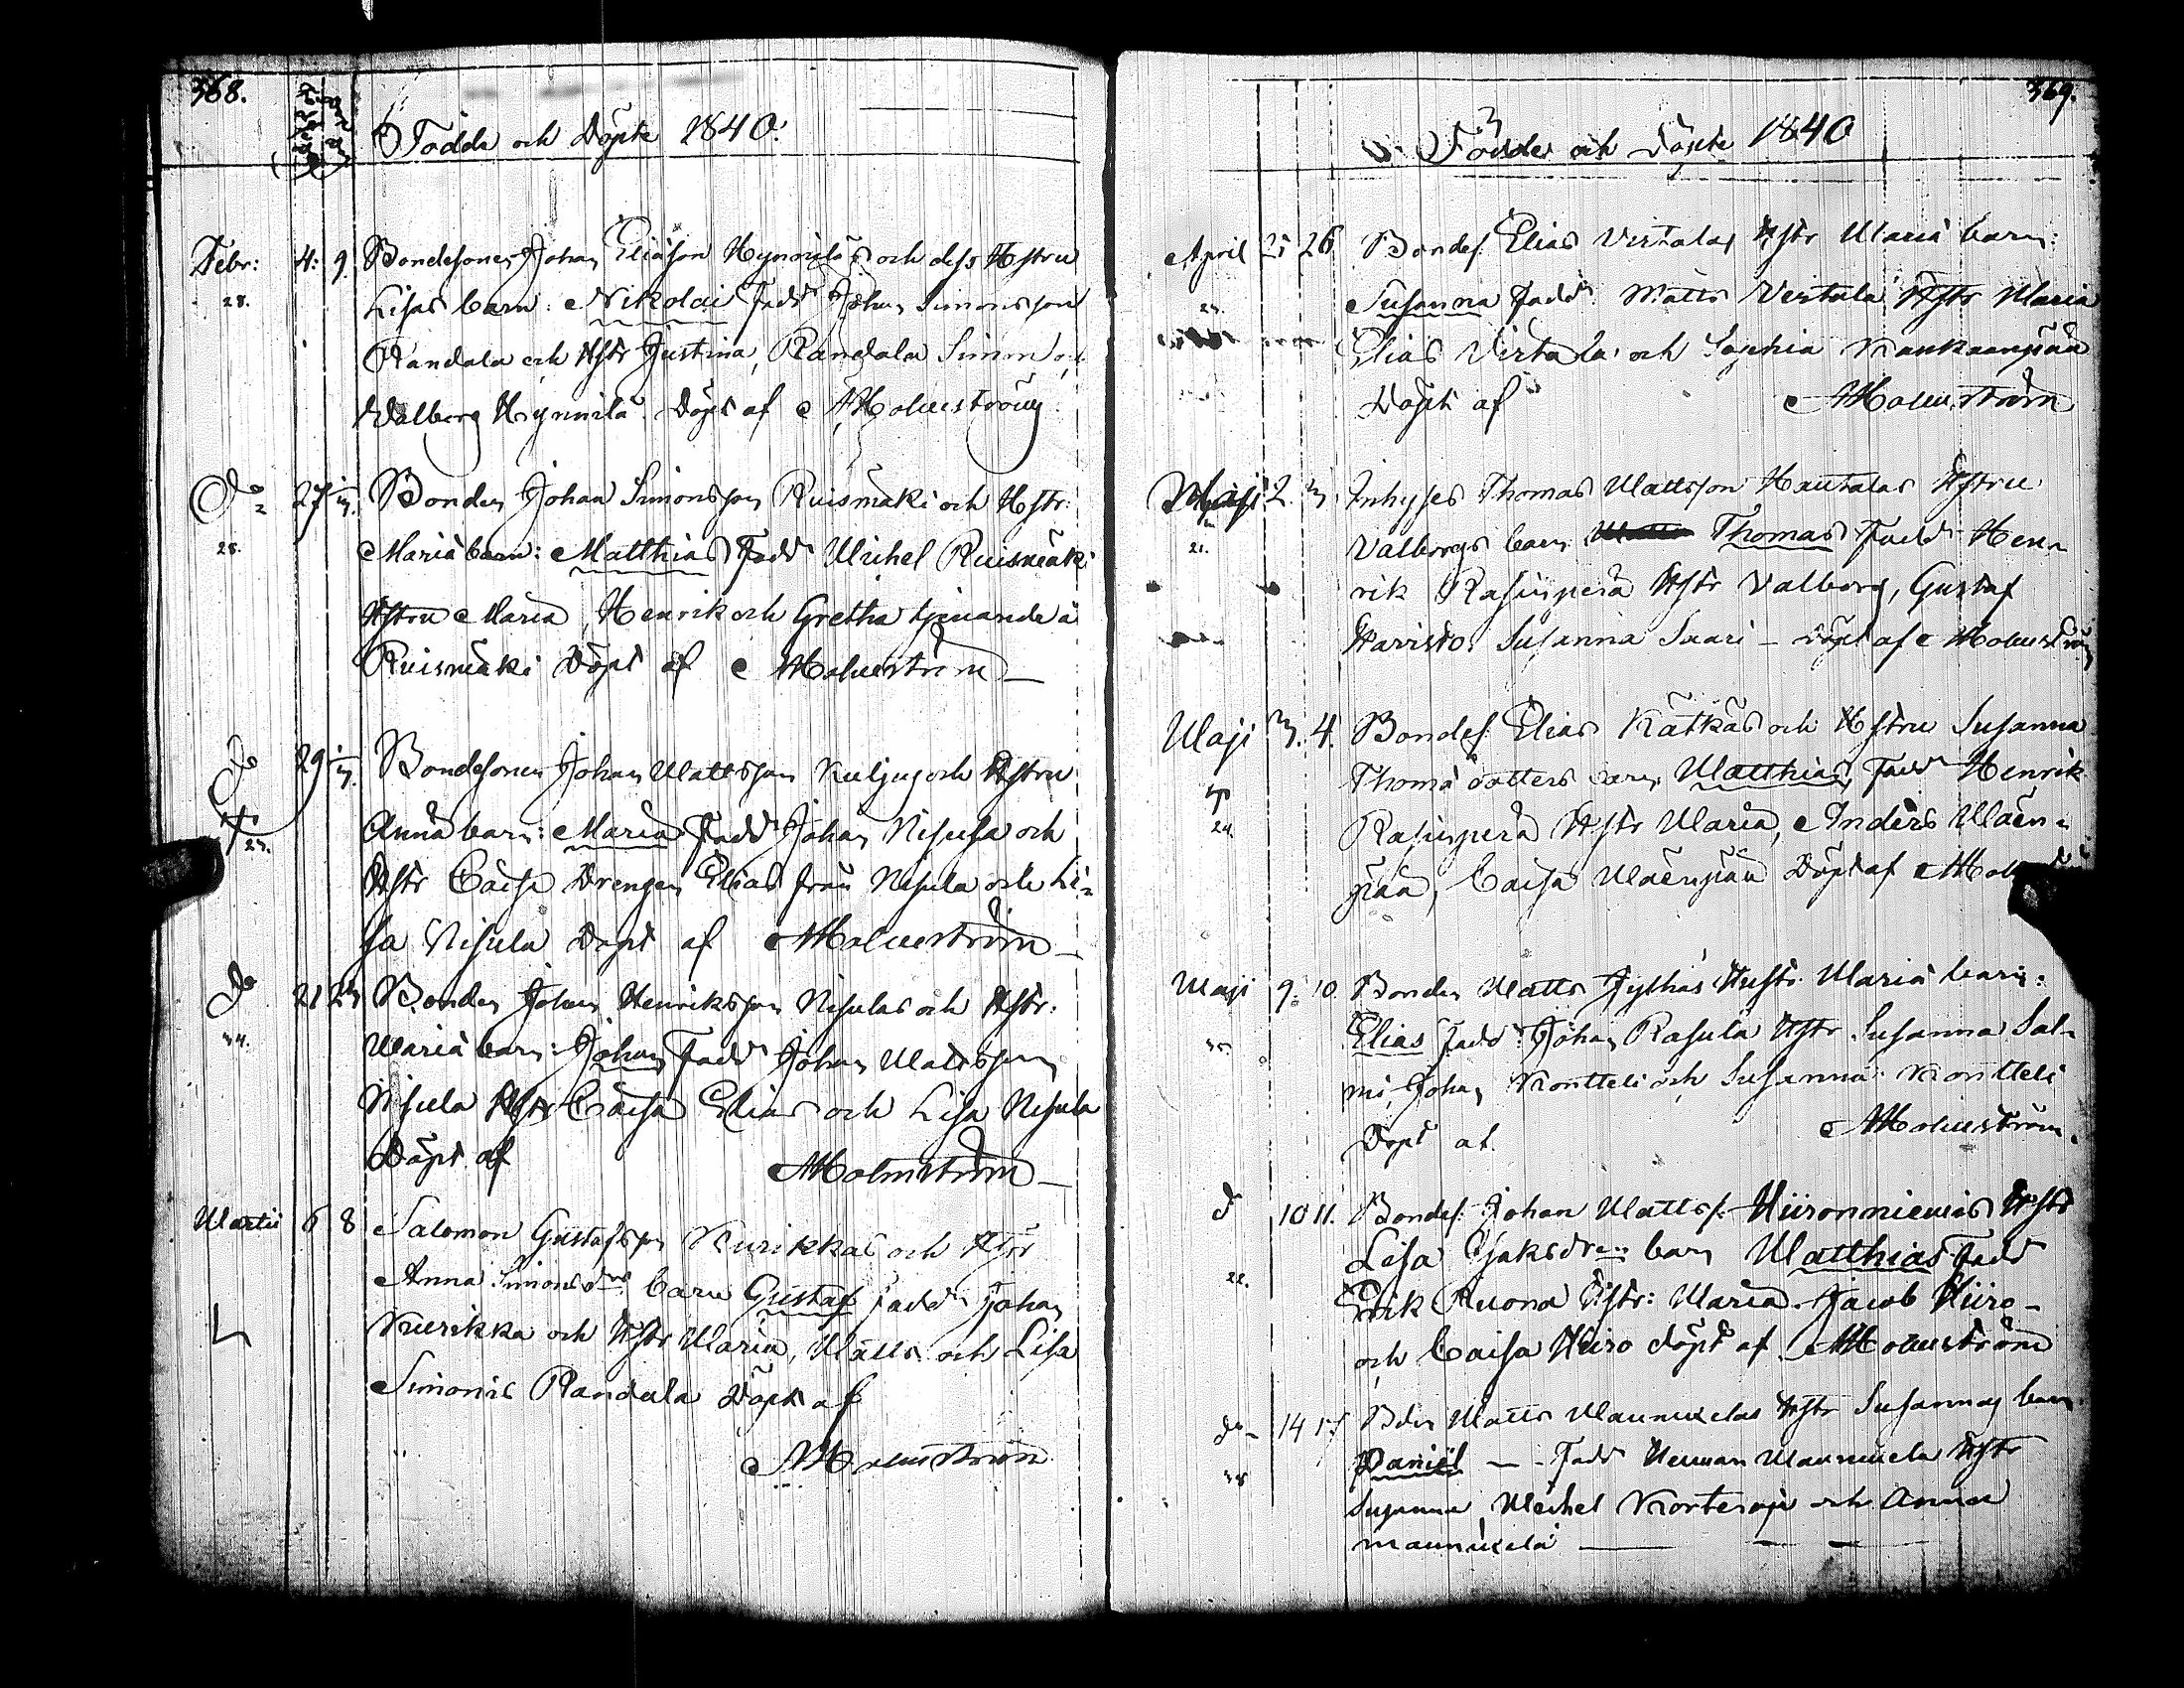 368.
Födda och Döpte 1840.
Febr: 4. 9. Bondesonen Johan Eliasson Hynniläs och dess Hstru
28. Lisas barn: Nikolai Fadd: Johan Simonsson
Randala och Hstr Justina, Randala Simon och
Walborg Hynnilä. Döpt af A Holmström
Do 27 Bonden Johan Simonsson Ruismäki och Hstr:
28. Mariä barn: Matthias Fadd: Michel Ruismäki
Hstru Maria, Henrik och Gretha tjenande å
Ruismäki Döpt af A Holmström
Do 29 Bondesonen Johan Mattsson och Hstru
Annä barn: Maria Fadd: Johan Nisula och
Hstr Caisa Drengen Elias från Nisula och Li-
sa Nisula Döpt af A Holmström
Do 21 23 Bonden Johan Henriksson Nisulas och Hstr:
34. Mariä barn: Johan Fadd: Johan Mattsson
Nisula Hstr Caisa Elias och Lisa Nisula
Döpt af A Holmström
Martii 6 8 Salomon Gustafsson Kurikkas och Hstr
Anna Simonsdrs barn Gustaf Fadd: Johan
Kurikka och Hstr Maria, Matts och Lisa
Simons Randala Döpt af
A Holmström
369.
Födde och Döpte 1840
April 25 26 Bondes. Elias Virtalas Hstr Mariä barn:
Susanna Fadd: Matts Virtala Hstr Maria
Elias Virtala och Sophia Kankaanpää
Döpt af A Holmström
Maji 2. 3. Inhyses Thomas Mattsson Hautalas Hstru
21. Valborgs barn Thomas Fadd: Hen-
rik Rasinperä Hstr Valborg, Gustaf
Harristo, Susanna Saari - Döpt af A Holmström
Maji 3. 4. Bondes. Elias Kätkäs och Hstru Susanna
Thomä dotters barn Matthias, Fadd: Henrik
24. Rasinperä Hstr Maria, Anders Mäen-
pää, Caisa Mäenpää Döpt af A
Maji 9. 10. Bonden Matts Jylhäs Hustr. Mariä barn:
Elias Fadd: Johan Rasula Hstr Susanna Sal-
mi, Johan Kontteli och Susanna Kontteli
Döpt af. A Holmström.
d 10 11. Bondes. Johan Mattss. Hiironniemis Hstr
22. Lisa Isaksdrs barn Matthias Fadd
Erik Ruona Hstr: Maria. Jacob Hiiro-
och Caisa Hiiro döpt af A Holmström
do 14 17 Bdn Matts Maunuxelas Hstr Susannas barn
38 Daniel - Fadd Herman Maunuxela Hstr
Susanna, Michel Kortesoja och Anna
maunuxela